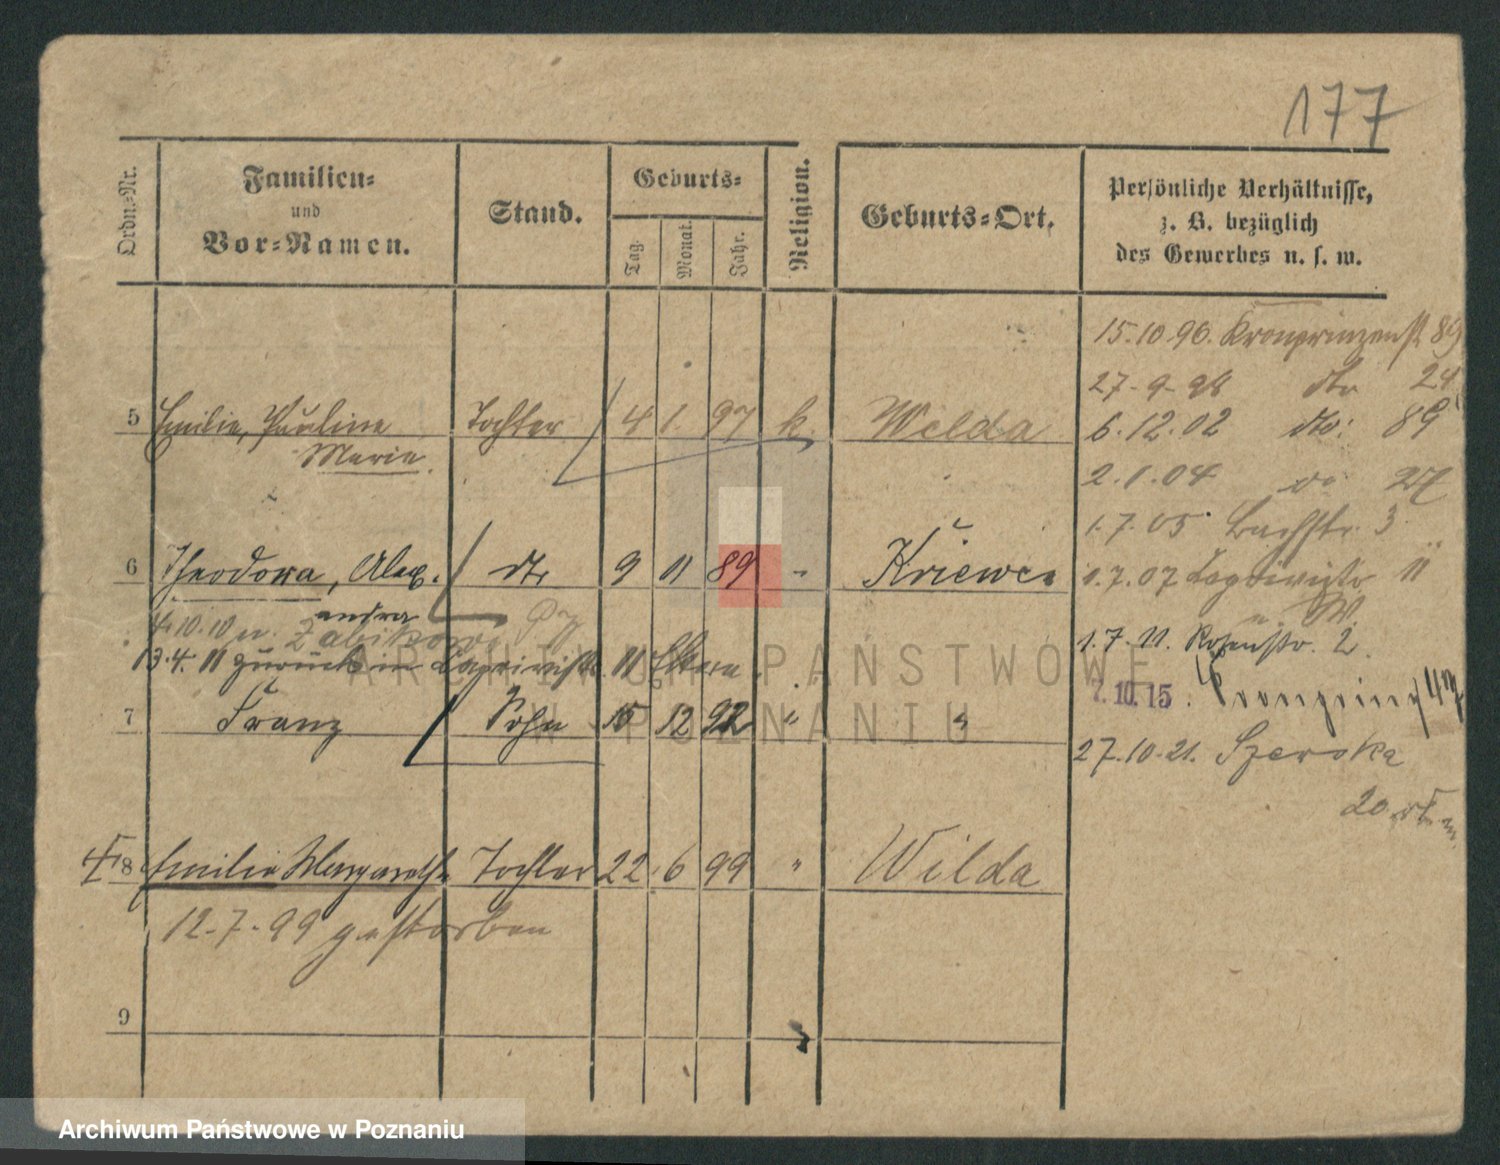 177
Ordn.-Nr.
Familien-
und
Vor-Namen.
Stand.
Geburts-
Tag.
Monat.
Jahr.
Religion.
Geburts-Ort.
Persönliche Verhältnisse,
z. B. bezüglich
des Gewerbes u. s. w.
15.10.96. Kronprinzenst 89
27-9-98 dto 24
5 Emilie, Pauline Tochter 4 1. 97 k. Wilda
Marie.
6.12.02 dto: 89
2.1.04 do 27
1.7.05 Bachstr. 3
6 Theodora, Alex. dto 9 11 89 " Kriewen
andra
1.7.07 Caprivistr 11
W.
4.10.10 n. Zabikowo
13.4.11 zurück in Caprivistr. 11 Eltern.
1.7.11. Rosenstr. 2.
7 Franz Sohn 15 12 92 " "
7.10.15. Kronprinz
27.10.21. Szeroka
20
8 Emilie Margarethe Tochter 22 6 99 " Wilda
12-7-99 gestorben
9
ARCHIWUM PAŃSTWOWE
W POZNANIU
Archiwum Państwowe w Poznaniu